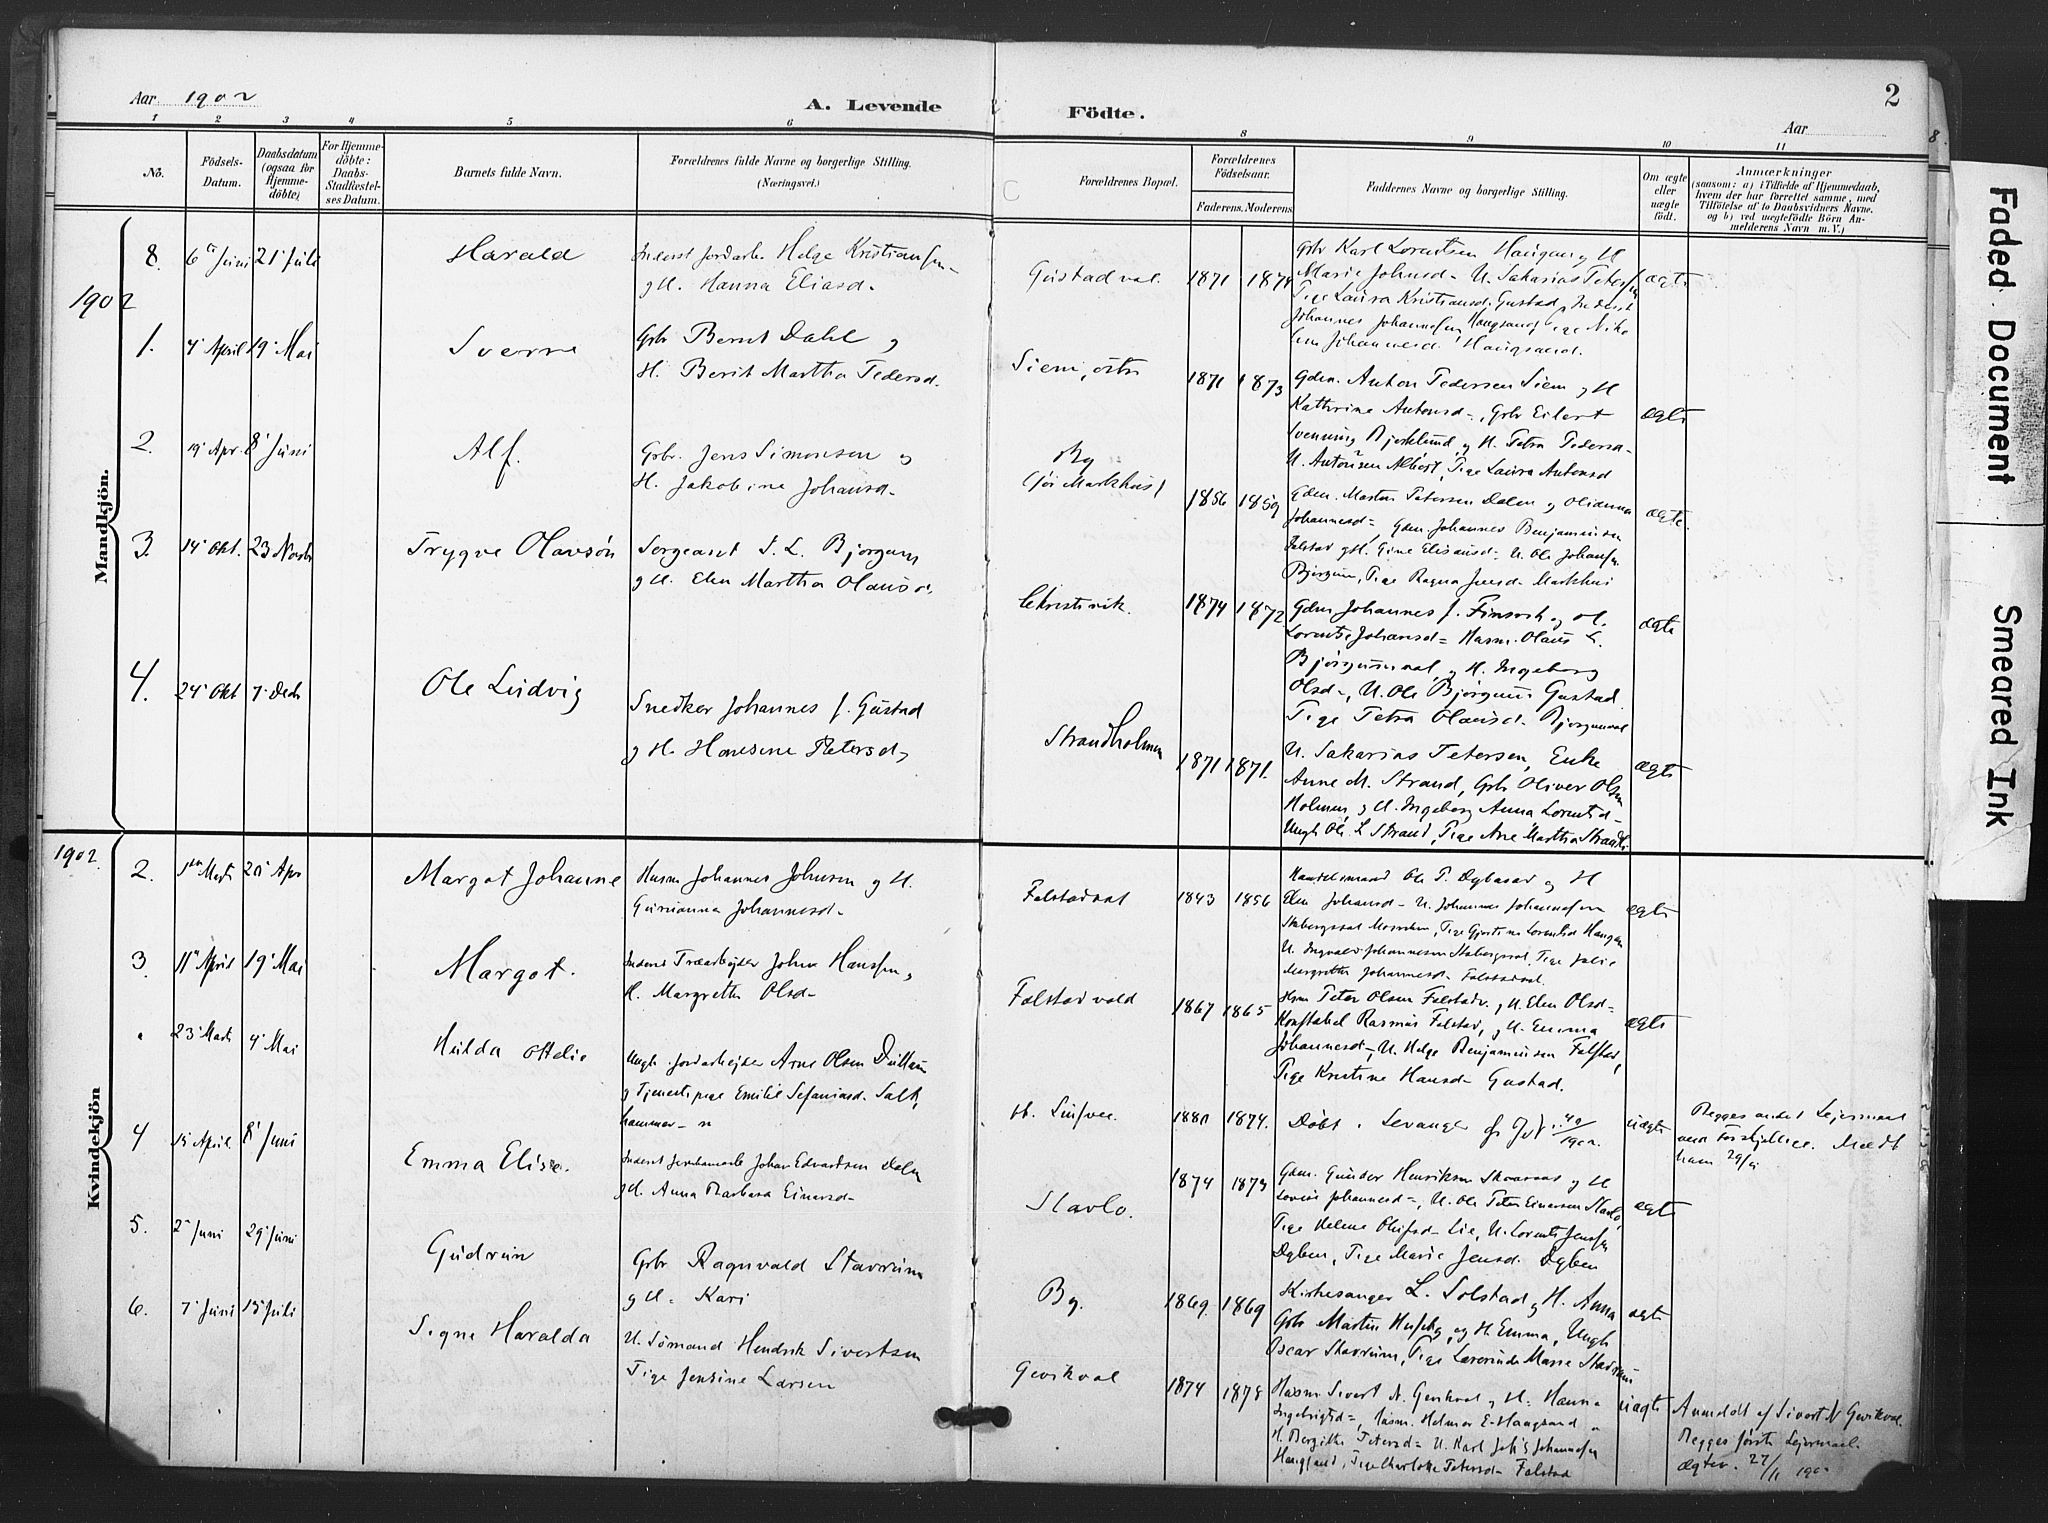 Aar 1902
A. Levende
Födte.
Aar
2
1 2 3 4 5 6 8 9 10 11
8
No.
Födsels-
Datum.
Daabsdatum
(ogsaa for
Hjemme-
döbte)
For Hjemme-
döbte:
Daabs-
Stadfæstel-
ses Datum.
Barnets fulde Navn.
Forældrenes fulde Navne og borgerlige Stilling.
(Næringsvei.)
Forældrenes Bopæl.
Forældrenes
Födselsaar.
Faderens. Moderens
Faddernes Navne og borgerlige Stilling.
Om ægte
eller
uægte
födt.
Anmærkninger
(saasom: a) i Tilfælde af Hjemmedaab,
hvem der har forrettet samme, med
Tilföielse af to Daabsvidners Navne.
og b) ved uægtefödte Börn An-
melderens Navn m. V.)
Mandkjön.
8. 6te Juni 21' Juli Harald
Inderst Jordarb. Helge Kristiansen
og H. Hanna Eliasd.
Gustadval. 1871 1874
Gbr Karl Lorentsen Haugan og H
Marie Johnsd- U. Sakarias Petersen
Pige Laura Kristiansd. Gustad, Inderst
Johannes Johannesen Haugsand, Pige
Johannesd. Haugsand.
ægte
1902
1. 4' April 19' Mai Sverre
Gbr Bernt Dahl og
H. Berit Martha Pedersd.
Siem, östr 1871 1873
Gdm. Anton Pedersen Siem og H
Kathrine Antonsd-, Gbr Eilert
Svenning Bjerklund og H. Petra Pedersd-
U. Antonsen Albert, Pige Laura Antonsd
ægte
2. 19' Apr. 8' Juni Alf.
Gbr. Jens Simonsen og
H. Jakobine Johansd-
By
(för Markhus) 1856 1859
Gdm. Martin Petersen Dalen og Olianna
Johannesd-, Gdm. Johannes Benjaminsen
Falstad og H. Gine Elisausd- U. Ole Johansen
Bjørgum, Pige Ragna Jensd- Markhus
ægte
3. 14' Okt. 23 Novbr Trygve Olavsön
Sergeant I. L. Bjørgum
og H. Elen Martha Olausd.
Christivik. 1874 1872
Gdm Johannes J. Finsvik og H.
Lorentse Johansd- Husm. Olaus L.
Bjørgumval og H. Ingeborg
Olsd-, U. Ole Bjørgum Gustad
Pige Petra Olausd- Bjørgumval
ægte
4. 24' Okt 7' Decbr Ole Ludvig
Snedker Johannes J. Gustad
og H. Hansine Petersd-
Strandholmen 1871 1871.
U. Sakarias Petersen, Enke
Anne M. Strand, Gbr Oliver Olsen
Holmen, og H. Ingeborg Anna Lorentsd-
Ungk Ole L Strand, Pige Ane Martha Strand
ægte
Kvindekjön
1902.
2. 1ste Marts 20' Apr Margot Johanne
Husm Johannes Johnsen og H.
Gurianna Johannesd-
Falstadval 1843 1856
Handelsmand Ole P. Dybesad og H
Elen Johansd- U. Johannes Johannesen
Pige Gjertine Lorentsd Haugan
U. Ingvald Johannesen Pige Julie
Margrethe Johannesd- Falstadval.
ægte
3. 11te April 19' Mai Margot.
Inderst Træarbejder Johan Hansen og
H. Margrethe Olsd-
Falstadvald 1867 1865
Hsm Peter Olsen Falstadv. og H. Elen Olsd-
Konstabel Rasmus Falstad, og H. Emma
Johannesd-, U. Helge Benjaminsen Falstad,
Pige Kristine Hansd- Gustad.
ægte
23' Marts 4' Mai Hulda Ottelie
Ungk. Jordarbejder Arne Olsen
og Tjenestepige Emilie Stefaniasd. Salt-
hammer-
1880 1874.
Döbt i Levanger
1902.
uægte
Begges andet Lejermaal
med Forskjellige. Meldt
ham 29/4
4 15' April. 8' Juni Emma Elise.
Inderst Jernbanearb Johan Edvardsen Dalen
og H. Anna Barbara Einersd-
Stavlo. 1874 1873
Gdm. Gunder Henriksen Skavaas og H
Lovise Johannesd-, U. Ole Peter Einersen Stavlo,
Pige Helene Olufsd- Lie, U. Lorents Jensen
Dyben, Pige Marie Jensd. Dyben
ægte
5. 2' Juni 29' Juni Gudrun
Gbr. Ragnvald Stavrum
og H- Kari
By. 1869. 1869
Kirkesanger L. Solstad og H. Anna
Gbr Martin Husby, og H. Emma, Ungk
Oscar Stavrum, Pige Laverinde Marie Stavrum
ægte
6. 7' Juni 13' Juli Signe Haralda
U. Sömand Hendrik Sivertsen
Pige Jensine Larsen
Gevikval 1874 1878
Husm. Sivert N. Gevikval og H. Hanna
Ingebrigtsd-, Husm. Helmer E. Haugsand
H. Bergithe Petersd- U. Karl Johannesen
Haugsand, Pige Charlotte Petersd- Falstad
uægte
Anmeldt af Sivert N Gevikval.
Begges förste Lejermaal.
27/11 1902
Faded Document Smeared Ink